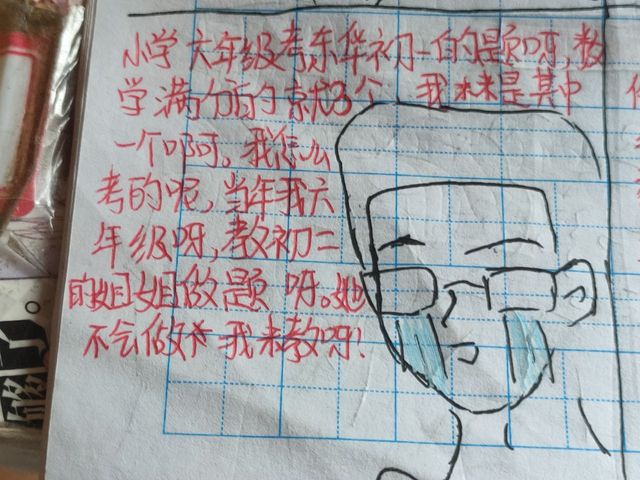 小学六年级考东华初一的题呀,数
学满分的就3个 我来是其中
一个啊。我怎么
考的呢,当年我六
年级呀,教初二
的姐姐做题呀。她
不会做我来教呀!
够了。